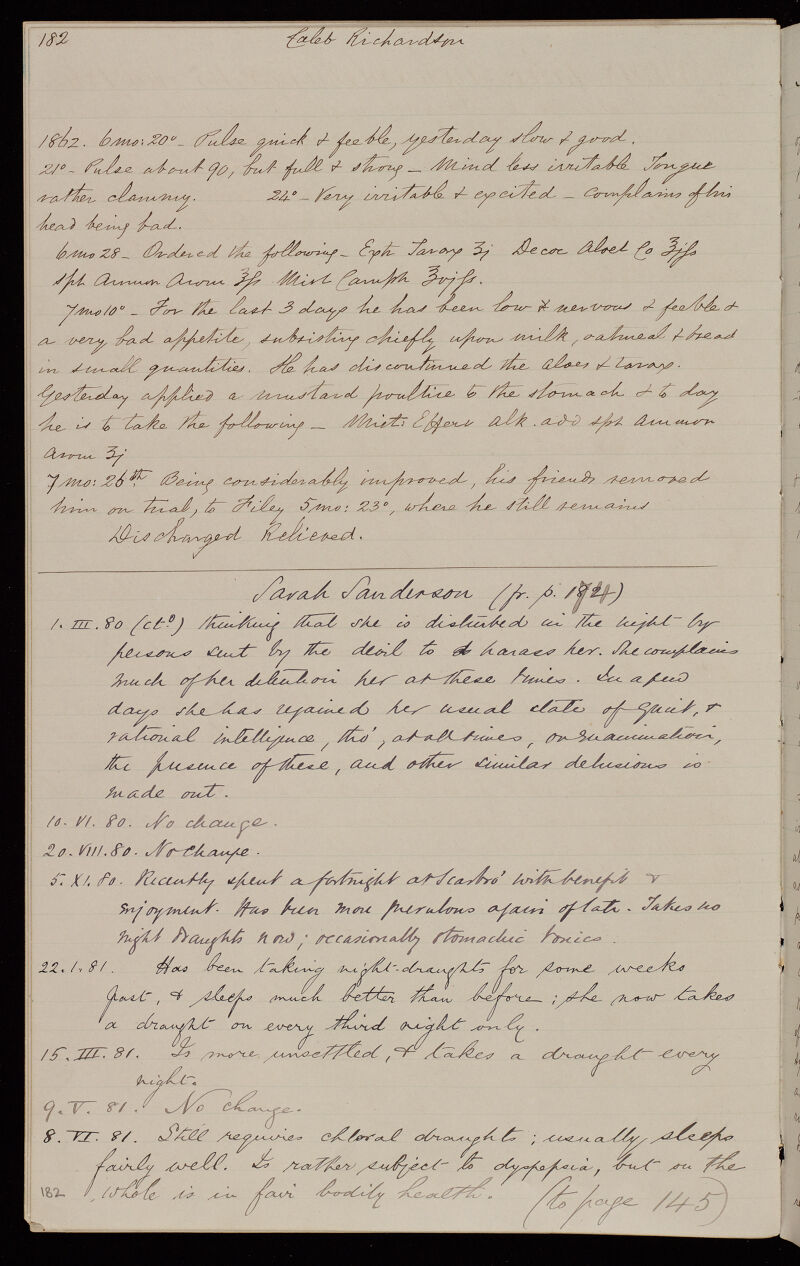 182 Caleb Richardson
1862. 6mo: 20º - Pulse quick & feeble, yesterday slow & good.
21º - Pulse about 90, but full & strong - Mind less irritable Tongue
rather clammy. 24º - Very irritable & excited - complains of his
head being bad.
6mo 28 - Ordered the following - Extr Tarax ʒj Decoc Aloet Co
Spt Ammon Arom Mist Camph
7mo 10º - For the last 3 days he has been low & nervous & feeble &
a very bad appetite, subsisting chiefly upon milk, oatmeal & bread
in small quantities. He has discontinued the aloes & tarax.
Yesterday applied a mustard poultice to the stomach & to day
he is to take the following - Mist: Efferv alk. add spt ammon
arom ʒj
7mo: 26th. Being considerably improved, his friends removed
him on trial, to Filey 5mo: 23º, where he still remains
Discharged Relieved.
Sarah Sanderson (fr. p. 174)
1. III. 80 (ctd) thinking that she is disturbed in the night by
persons sent by the devil to harass her. She complains
much of her detention her at these times. In a few
days she has regained her usual state of quiet, &
rational intelligence, tho', at all times, on examination,
the presence of these, and other similar delusions is
made out.
10. VI. 80. No change.
20. VIII. 80. No change.
5. XI. 80. Recently spent a fortnight at Scarbro' with benefit &
enjoyment. Has been more querulous again of late. Takes no
night draughts now; occasionally stomachic tonics.
22. 1. 81. Has been taking night-draughts for some weeks
past, & sleeps much better than before; she now takes
a draught on every third night only.
15. III. 81. Is more unsettled, & takes a draught every
night.
9. V. 81. No change.
8. VI. 81. Still requires chloral draughts; usually sleeps
fairly well. Is rather subject to dyspepsia, but on the
182 whole is in fair bodily health. (to page 145)